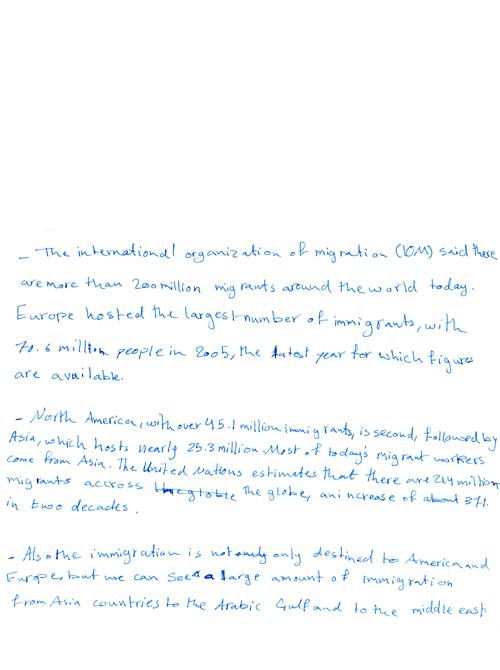 - The international organization of migration (IOM) said there
are more than 200 million migrants around the world today.
Europe hosted the largest number of immigrants, with
70.6 million people in 2005, the latest year for which figures
are available.
- North America, with over 45.1 million immigrants, is second, followed by
Asia, which hosts nearly 25.3 million. Most of today's migrant workers
come from Asia. The United Nations estimates that there are 214 million
migrants accross the globe, an increase of about 37%
in two decades.
- Also the immigration is not only destined to America and
Europe, but we can see a large amount of immigration
from Asia countries to the Arabic Gulf and to the middle east